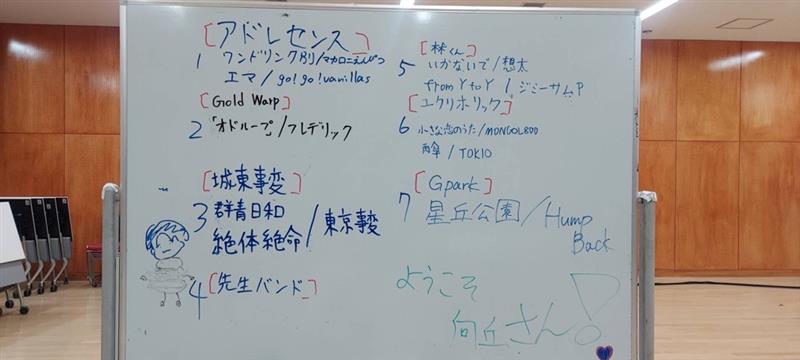 [アドレセンス]
1 ワンドリンク別/マカロニえんぴつ
エマ/go!go!vanillas
[Gold Warp]
2 「オドループ」/フレデリック
[城東事変]
3 群青日和
絶体絶命/東京事変
4 [先生バンド]
[林くん]
5 いかないで/想太
from Y to Y / ジミーサムP
[ユクリホリック]
6 小さな恋のうた/MONGOL800
雨傘/TOKIO
[Gpark]
7 星丘公園/Hump
Back
ようこそ
向丘さん!